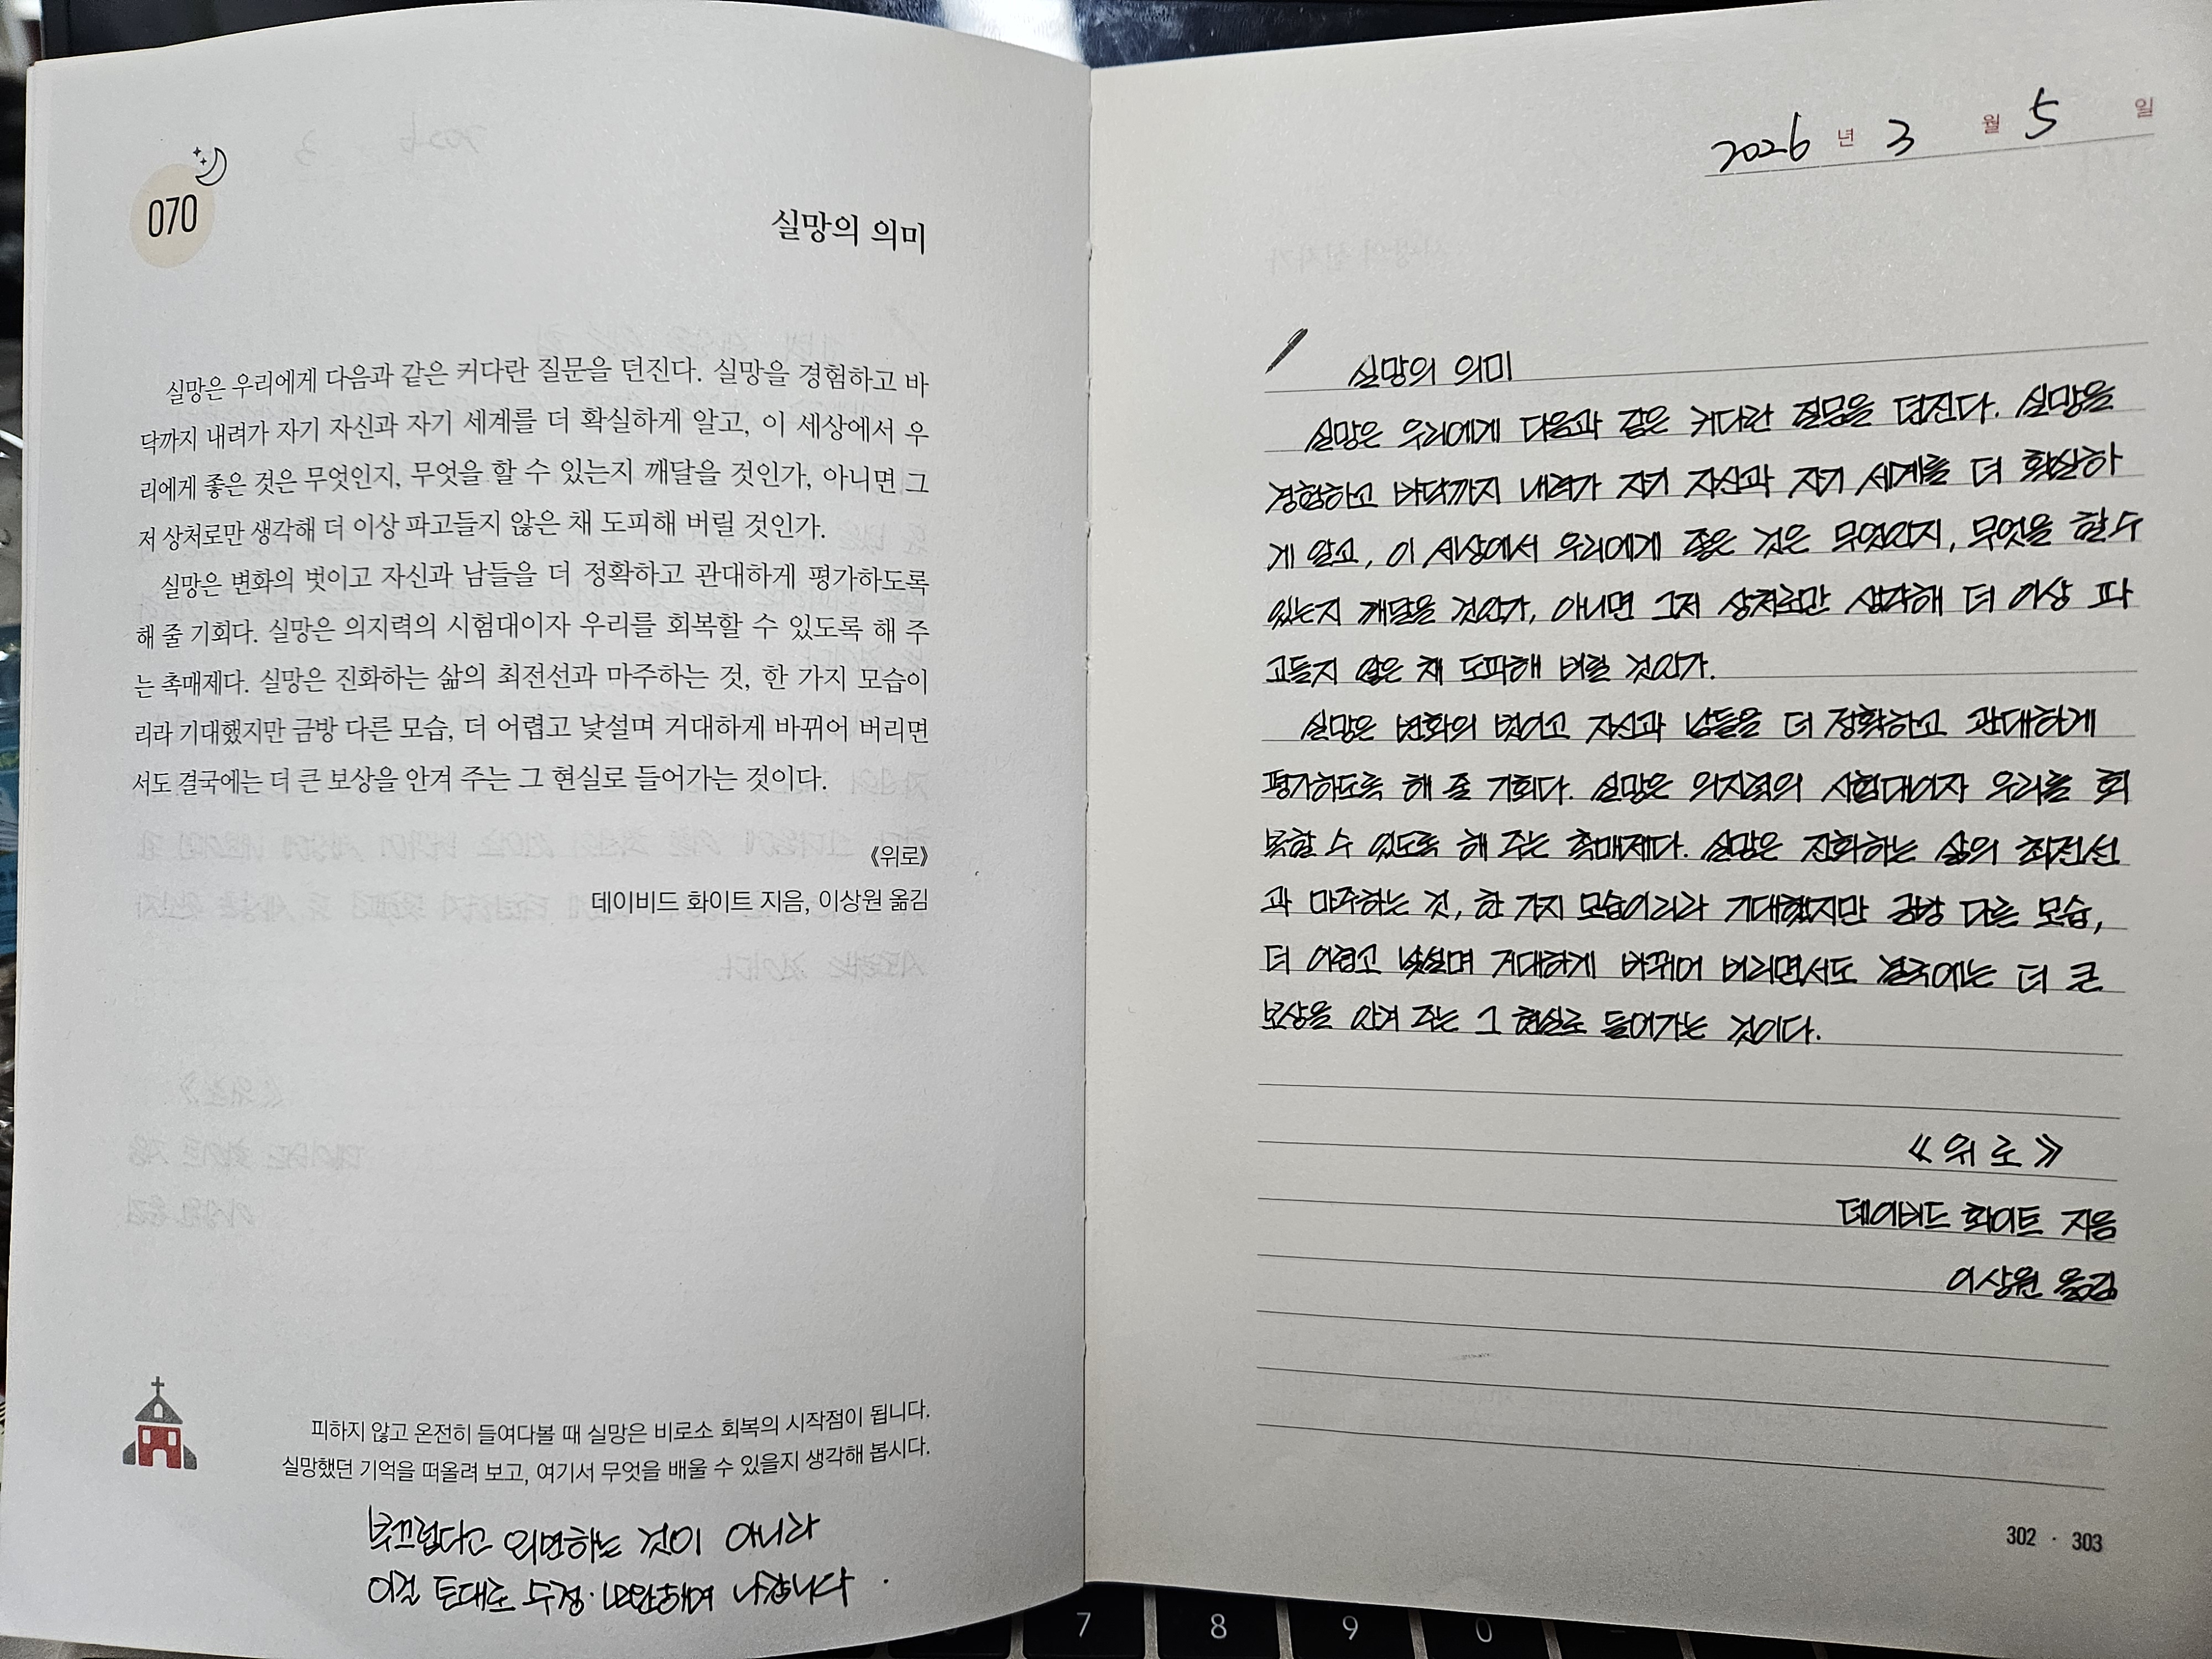 070
실망의 의미
실망은 우리에게 다음과 같은 커다란 질문을 던진다. 실망을 경험하고 바
닥까지 내려가 자기 자신과 자기 세계를 더 확실하게 알고, 이 세상에서 우
리에게 좋은 것은 무엇인지, 무엇을 할 수 있는지 깨달을 것인가, 아니면 그
저 상처로만 생각해 더 이상 파고들지 않은 채 도피해 버릴 것인가.
실망은 변화의 벗이고 자신과 남들을 더 정확하고 관대하게 평가하도록
해 줄 기회다. 실망은 의지력의 시험대이자 우리를 회복할 수 있도록 해 주
는 촉매제다. 실망은 진화하는 삶의 최전선과 마주하는 것, 한 가지 모습이
리라 기대했지만 금방 다른 모습, 더 어렵고 낯설며 거대하게 바뀌어 버리면
서도 결국에는 더 큰 보상을 안겨 주는 그 현실로 들어가는 것이다.
《위로》
데이비드 화이트 지음, 이상원 옮김
피하지 않고 온전히 들여다볼 때 실망은 비로소 회복의 시작점이 됩니다.
실망했던 기억을 떠올려 보고, 여기서 무엇을 배울 수 있을지 생각해 봅시다.
부끄럽다고 외면하는 것이 아니라
이걸 토대로 수정·보완해며 나갑니다.
2026 년 3 월 5 일
실망의 의미
실망은 우리에게 다음과 같은 커다란 질문을 던진다. 실망을
경험하고 바닥까지 내려가 자기 자신과 자기 세계를 더 확실하
게 알고, 이 세상에서 우리에게 좋은 것은 무엇인지, 무엇을 할 수
있는지 깨달을 것인가, 아니면 그저 상처로만 생각해 더 이상 파
고들지 않은 채 도피해 버릴 것인가.
실망은 변화의 벗이고 자신과 남들을 더 정확하고 관대하게
평가하도록 해 줄 기회다. 실망은 의지력의 시험대이자 우리를 회
복할 수 있도록 해 주는 촉매제다. 실망은 진화하는 삶의 최전선
과 마주하는 것, 한 가지 모습이리라 기대했지만 금방 다른 모습,
더 어렵고 낯설며 거대하게 바뀌어 버리면서도 결국에는 더 큰
보상을 안겨 주는 그 현실로 들어가는 것이다.
《위로》
데이비드 화이트 지음
이상원 옮김
302 · 303
7 8 9 0